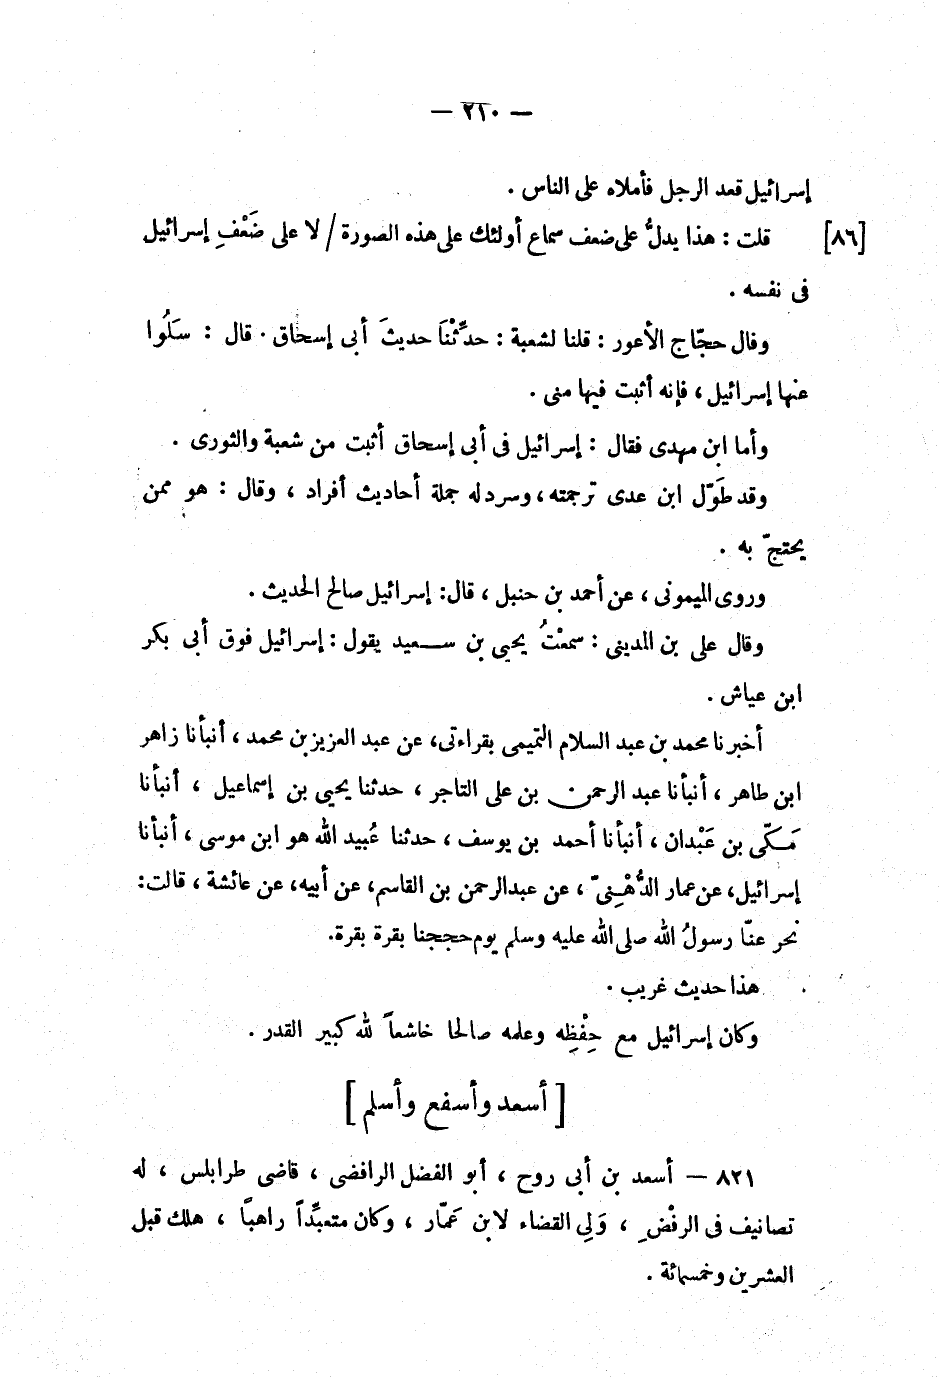 — ٢١٠ —
إسرائيل قعد الرجل فأملاه على الناس .
[٨٦] قلت : هذا يدلُّ على ضعف سماع أولئك على هذه الصورة / لا على ضَعْفِ إسرائيل
فى نفسه .
وقال حجّاج الأعور : قلنا لشعبة : حدِّثْنَا حديثَ أبى إسحاق . قال : سَلُوا
عنها إسرائيل ، فإنه أثبت فيها منى .
وأما ابن مهدى فقال : إسرائيل فى أبى إسحاق أثبت من شعبة والثورى .
وقد طَوّل ابن عدى ترجمته ، وسرد له جملة أحاديث أفراد ، وقال : هو ممن
يحتجّ به .
وروى الميمونى ، عن أحمد بن حنبل ، قال : إسرائيل صالح الحديث .
وقال على بن المدينى : سمعْتُ يحيى بن سعيد يقول : إسرائيل فوق أبى بكر
ابن عياش .
أخبرنا محمد بن عبد السلام التميمى بقراءتى ، عن عبد العزيز بن محمد ، أنبأنا زاهر
ابن طاهر ، أنبأنا عبد الرحمن بن على التاجر ، حدثنا يحيى بن إسماعيل ، أنبأنا
مَكّى بن عَبْدان ، أنبأنا أحمد بن يوسف ، حدثنا عُبيد الله هو ابن موسى ، أنبأنا
إسرائيل ، عن عمار الدُّهْنِىّ ، عن عبد الرحمن بن القاسم ، عن أبيه ، عن عائشة ، قالت :
نحر عنّا رسولُ الله صلى الله عليه وسلم يوم حججنا بقرة بقرة .
هذا حديث غريب .
وكان إسرائيل مع حِفْظِه وعلمه صالحا خاشعاً لله كبير القدر .
[ أسعد وأسفع وأسلم ]
٨٢١ — أسعد بن أبى روح ، أبو الفضل الرافضى ، قاضى طرابلس ، له
تصانيف فى الرفْضِ ، وَلِى القضاء لابن عَمّار ، وكان متعبِّداً راهبًا ، هلك قبل
العشرين وخمسمائة .